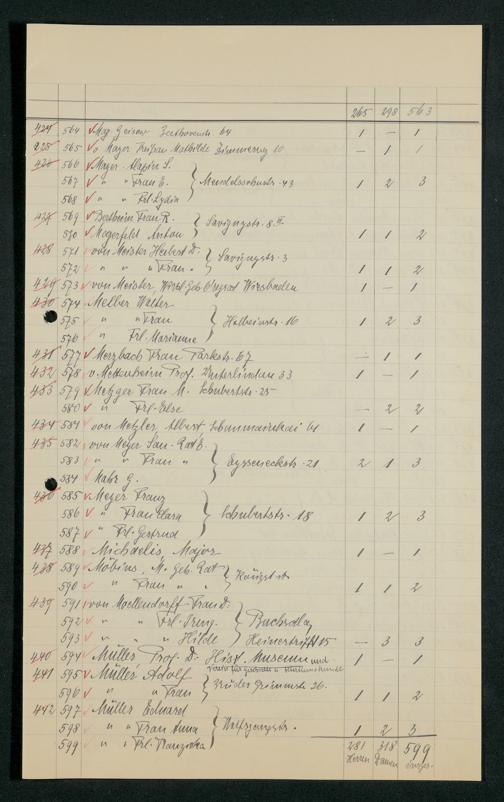 265 298 563
424 564 Beethovenstr. 64 1 — 1
425 565 v. Mayer Freifrau Mathilde Zimmerweg 10 — 1 1
426 566 Mayer S.
567 " " Frau E. Mendelssohnstr. 43 1 2 3
568 " " Frl. Lydia
569 Frau R. Savignystr. 8 II
570 Mayerfeld Anton 1 1 2
428 571 von Meister Herbert Dr. Savignystr. 3
572 " " " Frau " 1 1 2
429 573 von Meister, Wirkl. Geh. Wiesbaden 1 — 1
430 574 Melber Walter
575 " " Frau Holbeinstr. 16 1 2 3
576 " Frl. Marianne
431 577 Merzbach Frau Parkstr. 67 — 1 1
432 578 v. Mettenheim Prof. Unterlindau 33 1 — 1
433 579 Metzger Frau M. Schubertstr. 25
580 " Frl. Else — 2 2
434 581 von Metzler, Albert Schaumainkai 61 1 — 1
435 582 von Meyer San. Rat E.
583 " " Frau " Eysseneckstr. 21 2 1 3
584 Mahr G.
436 585 Meyer Franz
586 " Frau Clara Schubertstr. 18 1 2 3
587 " Frl. Gertrud
437 588 Michaelis, Major 1 — 1
438 589 Möbius, M. Geh. Rat Königstr.
590 " " Frau " " 1 1 2
439 591 von Moellendorff Frau Dr.
592 " " Frl. Irmg.
593 " " " Hilde — 3 3
440 594 Müller Prof. Dr. Hist. Museum und 1 — 1
441 595 Müller Adolf
596 " " Frau 26. 1 1 2
442 597 Müller Eduard
598 " " Frau Anna Wolfsgangstr. 1 2 3
599 " " Frl. Franziska 281 318 599
Herren Damen